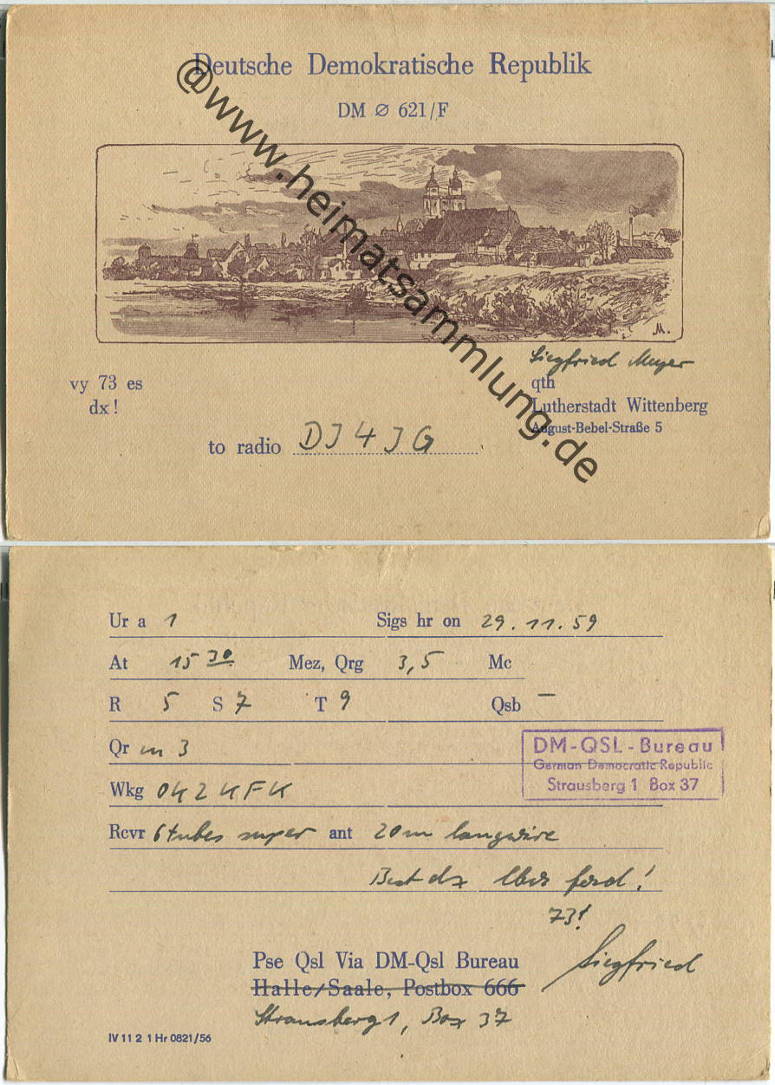 Deutsche Demokratische Republik
DM ∅ 621/F
@www.heimatsammlung.de
M.
Siegfried Meyer
vy 73 es
dx!
qth
Lutherstadt Wittenberg
August-Bebel-Straße 5
to radio DJ4JG
Ur a 1 Sigs hr on 29.11.59
At 15 30 Mez, Qrg 3,5 Mc
R 5 S 7 T 9 Qsb —
Qr m 3
DM-QSL-Bureau
German Democratic Republic
Strausberg 1 Box 37
Wkg
Rcvr 6 tubes super ant 20m langwire
Best dx lbr
73!
Siegfried
Pse Qsl Via DM-Qsl Bureau
Halle/Saale, Postbox 666
Strausberg 1, Box 37
IV 11 2 1 Hr 0821/56